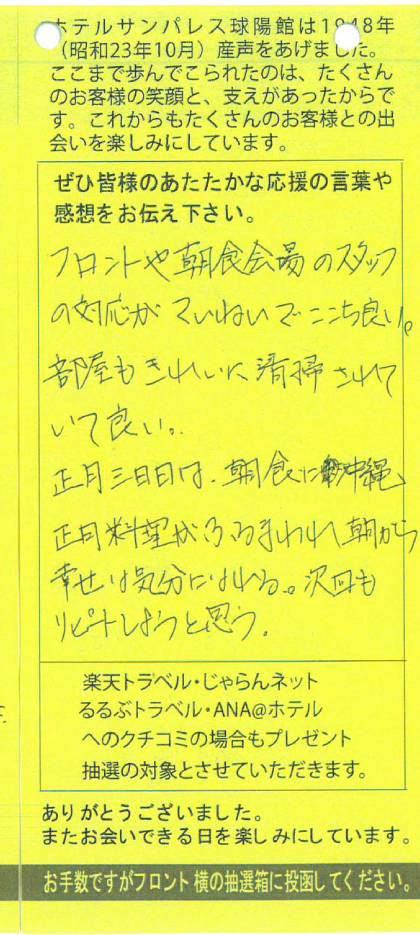 ホテルサンパレス球陽館は1948年
（昭和23年10月）産声をあげました。
ここまで歩んでこられたのは、たくさん
のお客様の笑顔と、支えがあったからで
す。これからもたくさんのお客様との出
会いを楽しみにしています。
ぜひ皆様のあたたかな応援の言葉や
感想をお伝え下さい。
フロントや朝食会場のスタッフ
の対応がていねいでここち良い。
部屋もきれいに清掃されて
いて良い。
正月三日目は、朝食に沖縄
正月料理がふるまわれ朝から
幸せな気分になれる。次回も
リピートしようと思う。
楽天トラベル・じゃらんネット
るるぶトラベル・ANA@ホテル
へのクチコミの場合もプレゼント
抽選の対象とさせていただきます。
ありがとうございました。
またお会いできる日を楽しみにしています。
お手数ですがフロント横の抽選箱に投函してください。